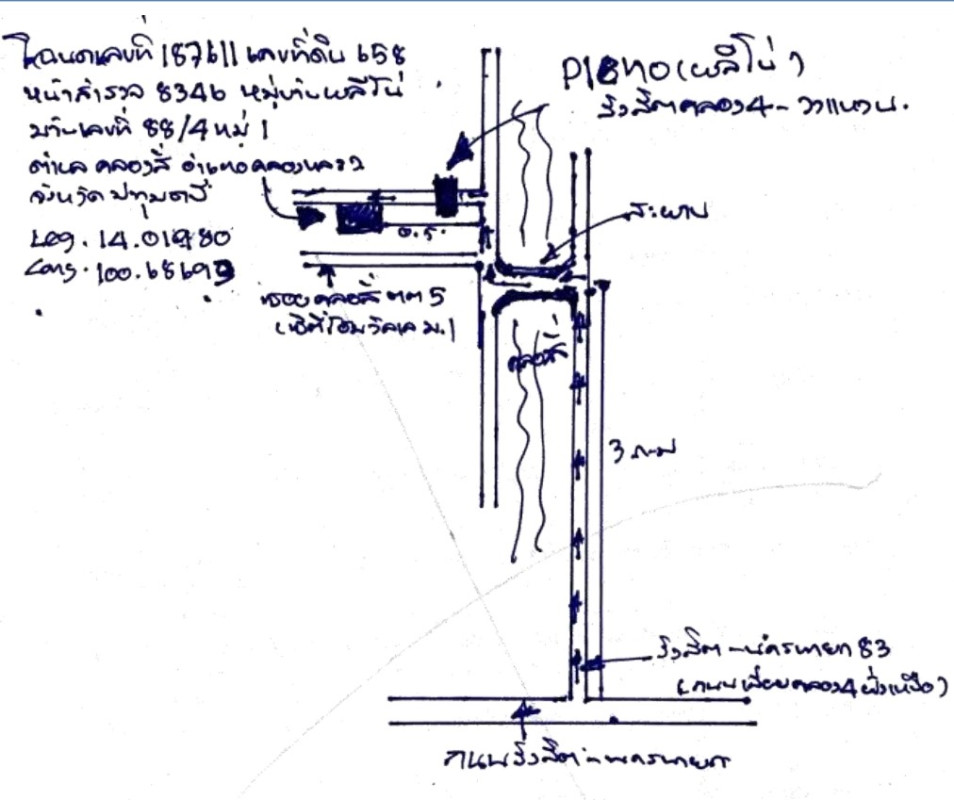 โฉนดเลขที่ 187611 เลขที่ดิน 658
หน้าสำรวจ 8346 หมู่บ้านพลีโน่
บ้านเลขที่ 88/4 หมู่ 1
ตำบล คลองสี่ อำเภอคลองหลวง
จังหวัด ปทุมธานี
Lag. 14.01980
Long. 100.6869
Pleno (พลีโน่)
รังสิตคลอง 4 - วงแหวน.
สะพาน
0.5.
ซอยคลองสี่ ตต 5
คลองสี่
3 กม
รังสิต - นครนายก 83
(ถนนเลียบคลอง 4 ฝั่งเหนือ)
ถนนรังสิต - นครนายก